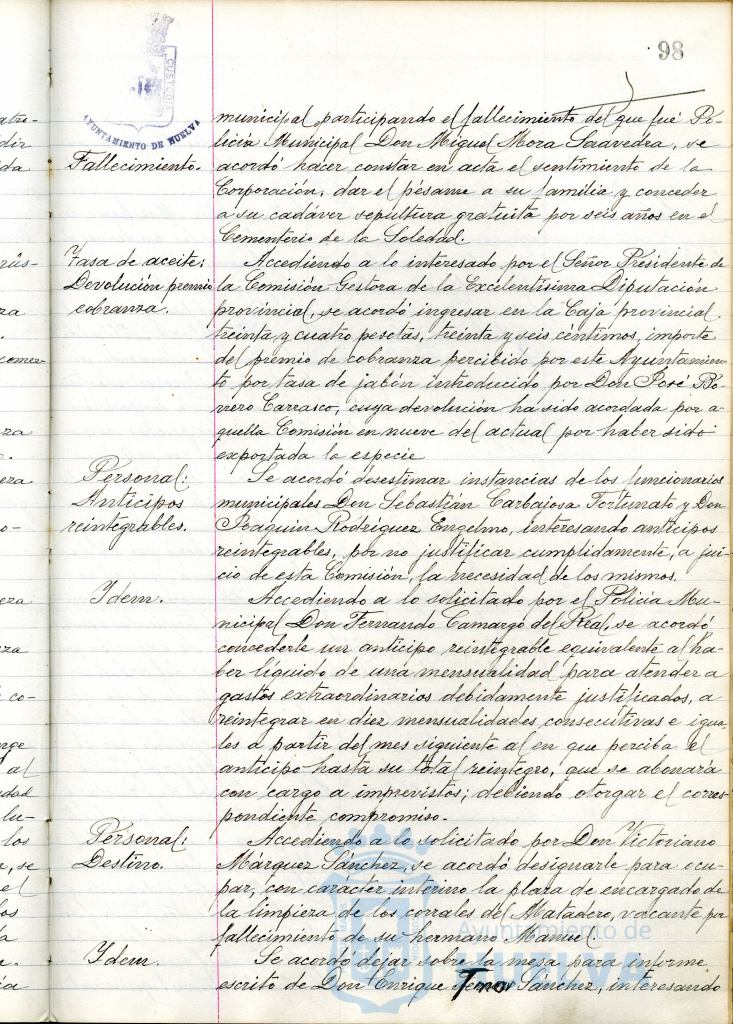 98
CUSTODIA
AYUNTAMIENTO DE HUELVA
municipal participando el fallecimiento del que fué Po-
licía Municipal Don Miguel Mora Saavedra, se
Fallecimiento.
acordó hacer constar en acta el sentimiento de la
Corporación, dar el pésame a su familia y conceder
a su cadáver sepultura gratuita por seis años en el
Cementerio de la Soledad.
Tasa de aceite:
Devolución premio
cobranza.
Accediendo a lo interesado por el Señor Presidente de
la Comisión Gestora de la Excelentísima Diputación
provincial, se acordó ingresar en la Caja provincial
treinta y cuatro pesetas, treinta y seis céntimos, importe
del premio de cobranza percibido por este Ayuntamien-
to por tasa de jabón introducido por Don José Ro-
mero Carrasco, cuya devolución ha sido acordada por a-
quella Comisión en nueve del actual por haber sido
exportada la especie
Personal:
Anticipos
reintegrables.
Se acordó desestimar instancias de los funcionarios
municipales Don Sebastián Carbajosa Fortunato y Don
Joaquín Rodríguez Engelmo, interesando anticipos
reintegrables, por no justificar cumplidamente, a jui-
cio de esta Comisión, la necesidad de los mismos.
Idem.
Accediendo a lo solicitado por el Policía Mu-
nicipal Don Fernando Camargo del Real, se acordó
concederle un anticipo reintegrable equivalente al ha-
ber líquido de una mensualidad para atender a
gastos extraordinarios debidamente justificados, a
reintegrar en diez mensualidades consecutivas e igua-
les a partir del mes siguiente al en que perciba el
anticipo hasta su total reintegro, que se abonaría
con cargo a imprevistos; debiendo otorgar el corres-
pondiente compromiso.
Personal:
Destino.
Accediendo a lo solicitado por Don Victoriano
Márquez Sánchez, se acordó designarle para ocu-
par, con carácter interino la plaza de encargado de
la limpieza de los corrales del Matadero, vacante por
fallecimiento de su hermano Manuel.
Idem.
Se acordó dejar sobre la mesa para informe
escrito de Don Enrique Sánchez, interesando
Ayuntamiento de
HUELVA